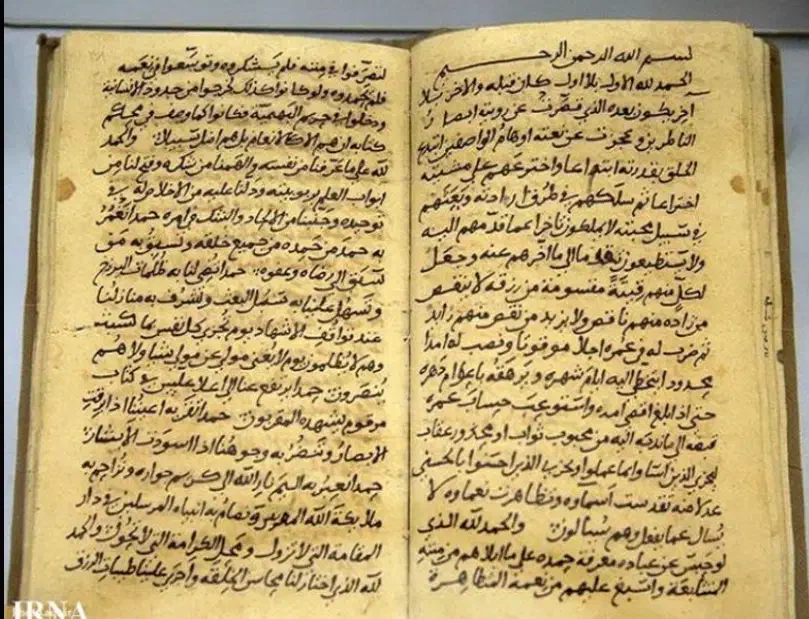 بسم الله الرحمن الرحيم
الحمد لله الاول بلا اول كان قبله والاخر بلا
اخر يكون بعده الذي قصرت عن رويته ابصار
الناظرين وعجزت عن نعته اوهام الواصفين ابتدع
الخلق بقدرته ابتداعا واخترعهم على مشيته
اختراعا ثم سلكهم في طريق ارادته وبعثهم
في سبيل محبته لا يملكون تاخيرا عما قدمهم اليه
ولا يستطيعون تقدما الى ما اخرهم عنه وجعل
لكل منهم قيتة مقسومة من رزقه لا ينقص
من زاده منهم ناقص ولا يزيد من نقص منهم زايد
ثم ضرب له في عمره اجلا موقوتا ونصب له امدا
محدودا يتخطى اليه ايام شهره ويرهقه باعوام دهره
حتى اذا بلغ اقصى امده واستوعب حساب عمره
قبضه الى ما ندبه اليه من محبوب ثوابه او محذور عقابه
ليجزي الذين اساوا بما عملوا ويجزي الذين احسنوا بالحسنى
عدلا منه تقدست اسماوه وتظاهرت نعماوه لا
يسال عما يفعل وهم يسالون والحمد لله الذي
لو حبس عن عباده معرفة حمده على ما ابلاهم من مننه
المتتابعة واسبغ عليهم من نعمه المتظاهرة
لتصرفوا في مننه فلم يشكروه وتوسعوا في نعمه
فلم يحمدوه ولو كانوا كذلك لخرجوا من حدود الانسانية
ودخلوا في حريم البهيمية فكانوا كما وصف في محكم
كتابه ان هم الا كالانعام بل هم اضل سبيلا والحمد
لله على ما عرفنا من نفسه والهمنا من شكره وفتح لنا من
ابواب العلم بربوبيته ودلنا عليه من الاخلاص له في
توحيده وجنبنا من الالحاد والشك في امره حمدا نعمر
به حمد من حمده من جميع خلقه ونسبق به من
سبق الى رضاه وعفوه حمدا يضي لنا به ظلمات البرزخ
ويسهل علينا به سبيل المبعث ويشرف به منازلنا
عند مواقف الاشهاد يوم تجزى كل نفس بما كسبت
وهم لا يظلمون يوم لا يغني مولى عن مولى شيا ولا هم
ينصرون حمدا يرتفع منا الى اعلا عليين في كتاب
مرقوم يشهده المقربون حمدا تقر به اعيننا اذا برقت
الابصار وتبيض به وجوهنا اذا اسودت الابشار
حمدا نعتق به من اليم نار الله الى كريم جواره ونزاحم به
ملايكة الله المقربين ونضام به انبياه المرسلين في دار
المقامة التي لا تزول ومحل الكرامة التي لا تحول والحمد
لله الذي اختار لنا محاسن الخلقه واجرى علينا طيبات الرزق
IRNA